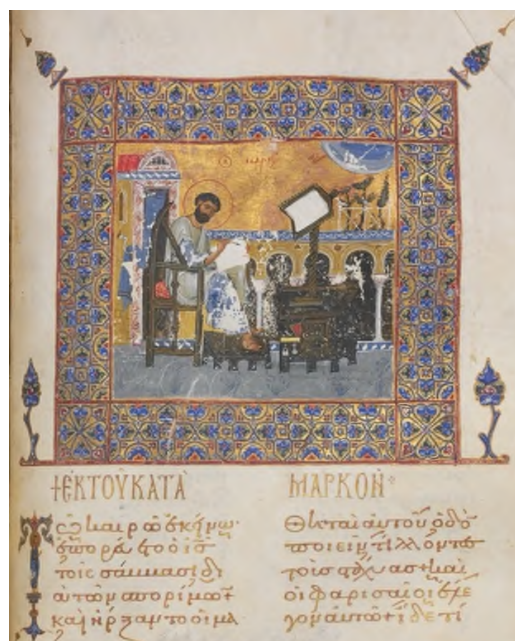 + ΕΚ ΤΟΥ ΚΑΤΑ ΜΑΡΚΟΝ
Τῶ καιρῶ ἐκείνω·
ἐπορεύετο ὁ ις
τοῖς σάββασι δι
ὰ τῶν σπορίμων
καὶ ἤρξαντο οἱ μα
θηταὶ αὐτοῦ ὁδὸ
ποιεῖν τίλλοντες
τοὺς στάχυας· καὶ
οἱ φαρισαῖοι ἔλε
γον αὐτῶ· ἴδε τί